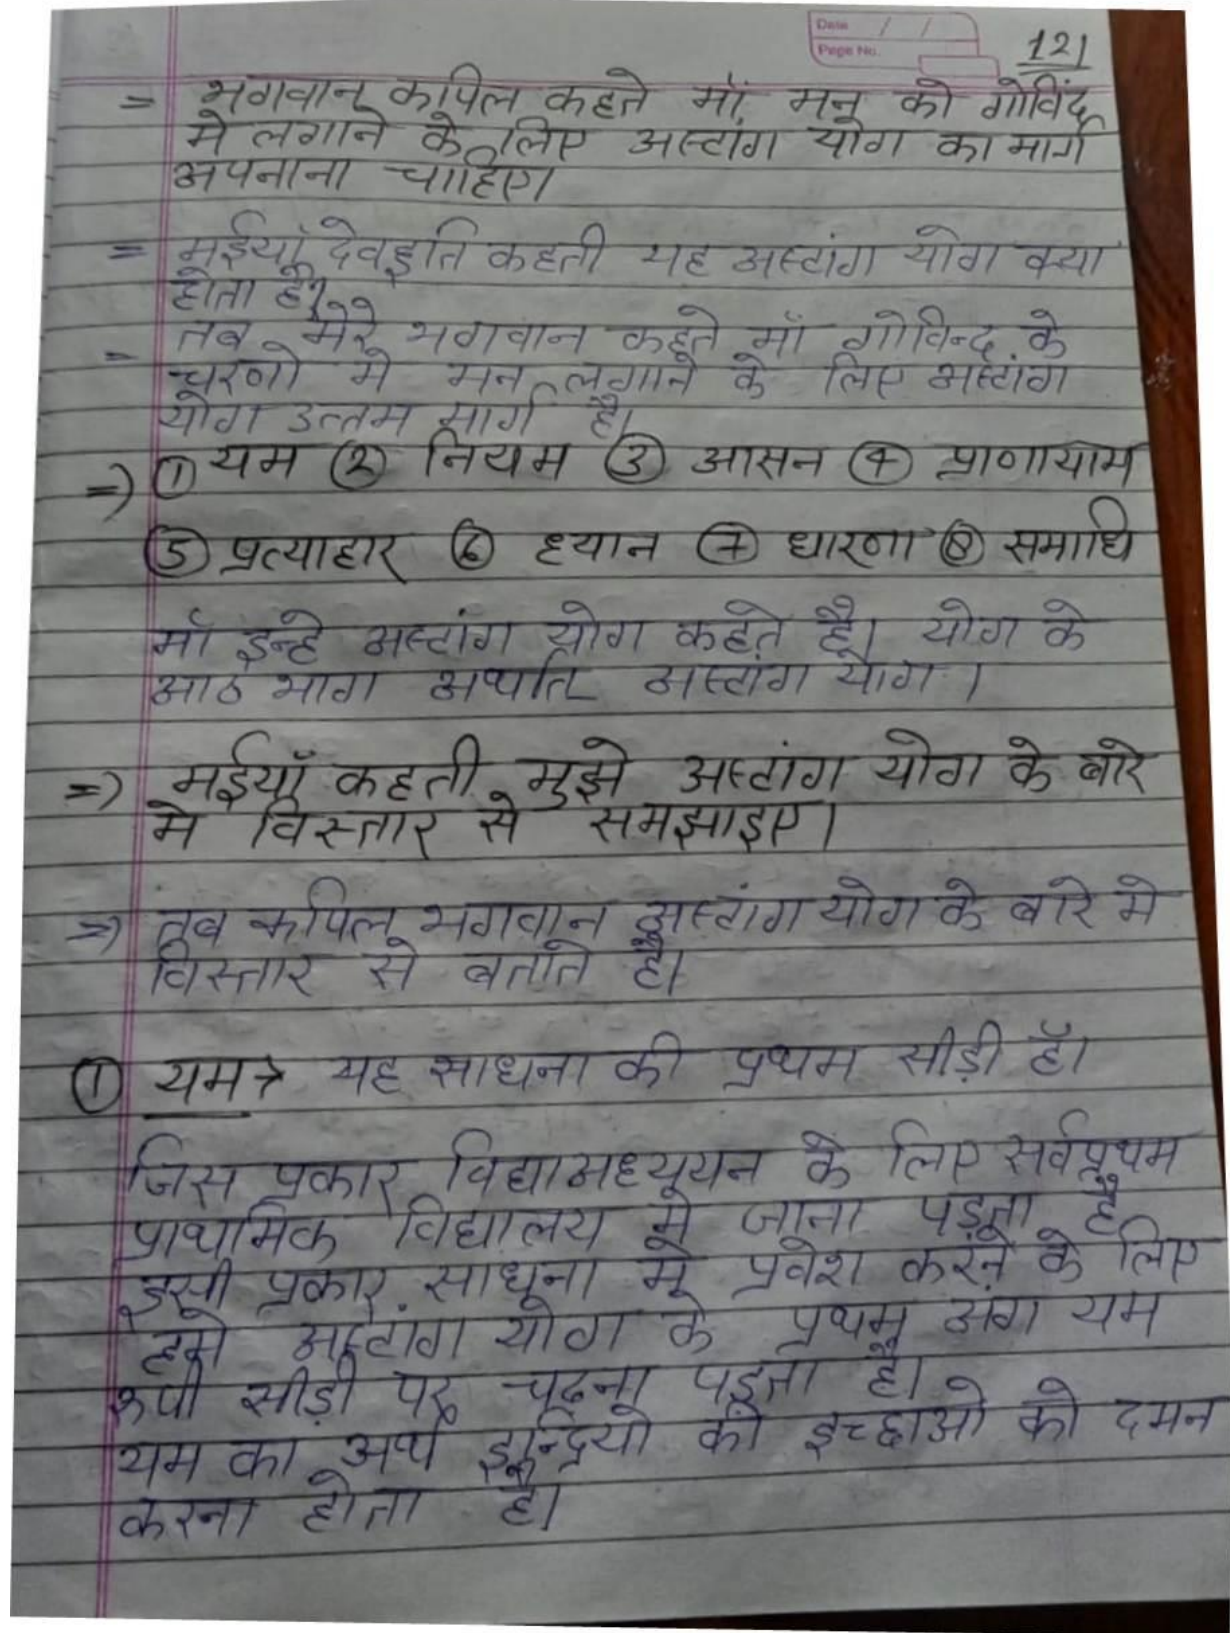 Date / /
Page No.
121
= भगवान कपिल कहते माँ मन को गोविंद
मे लगाने के लिए अस्टांग योग का मार्ग
अपनाना चाहिए।
= मईयाँ देवहुति कहती यह अस्टांग योग क्या
होता है?
= तब मेरे भगवान कहते माँ गोविन्द के
चरणो मे मन लगाने के लिए अस्टांग
योग उत्तम मार्ग है।
=) ① यम ② नियम ③ आसन ④ प्राणायाम
⑤ प्रत्याहार ⑥ ध्यान ⑦ धारणा ⑧ समाधि
माँ इन्हे अस्टांग योग कहते है। योग के
आठ भाग अर्थात अस्टांग योग।
=) मईयाँ कहती मुझे अस्टांग योग के बारे
मे विस्तार से समझाइए।
=) तब कपिल भगवान अस्टांग योग के बारे मे
विस्तार से बताते है।
① यम → यह साधना की प्रथम सीड़ी हैं।
जिस प्रकार विद्याअध्ययन के लिए सर्वप्रथम
प्राथमिक विद्यालय मे जाना पड़ता है
इसी प्रकार साधना मे प्रवेश करने के लिए
हमे अस्टांग योग के प्रथम अंग यम
रूपी सीड़ी पर चढना पड़ता है।
यम का अर्थ इन्द्रियो की इच्छाओ को दमन
करना होता है।